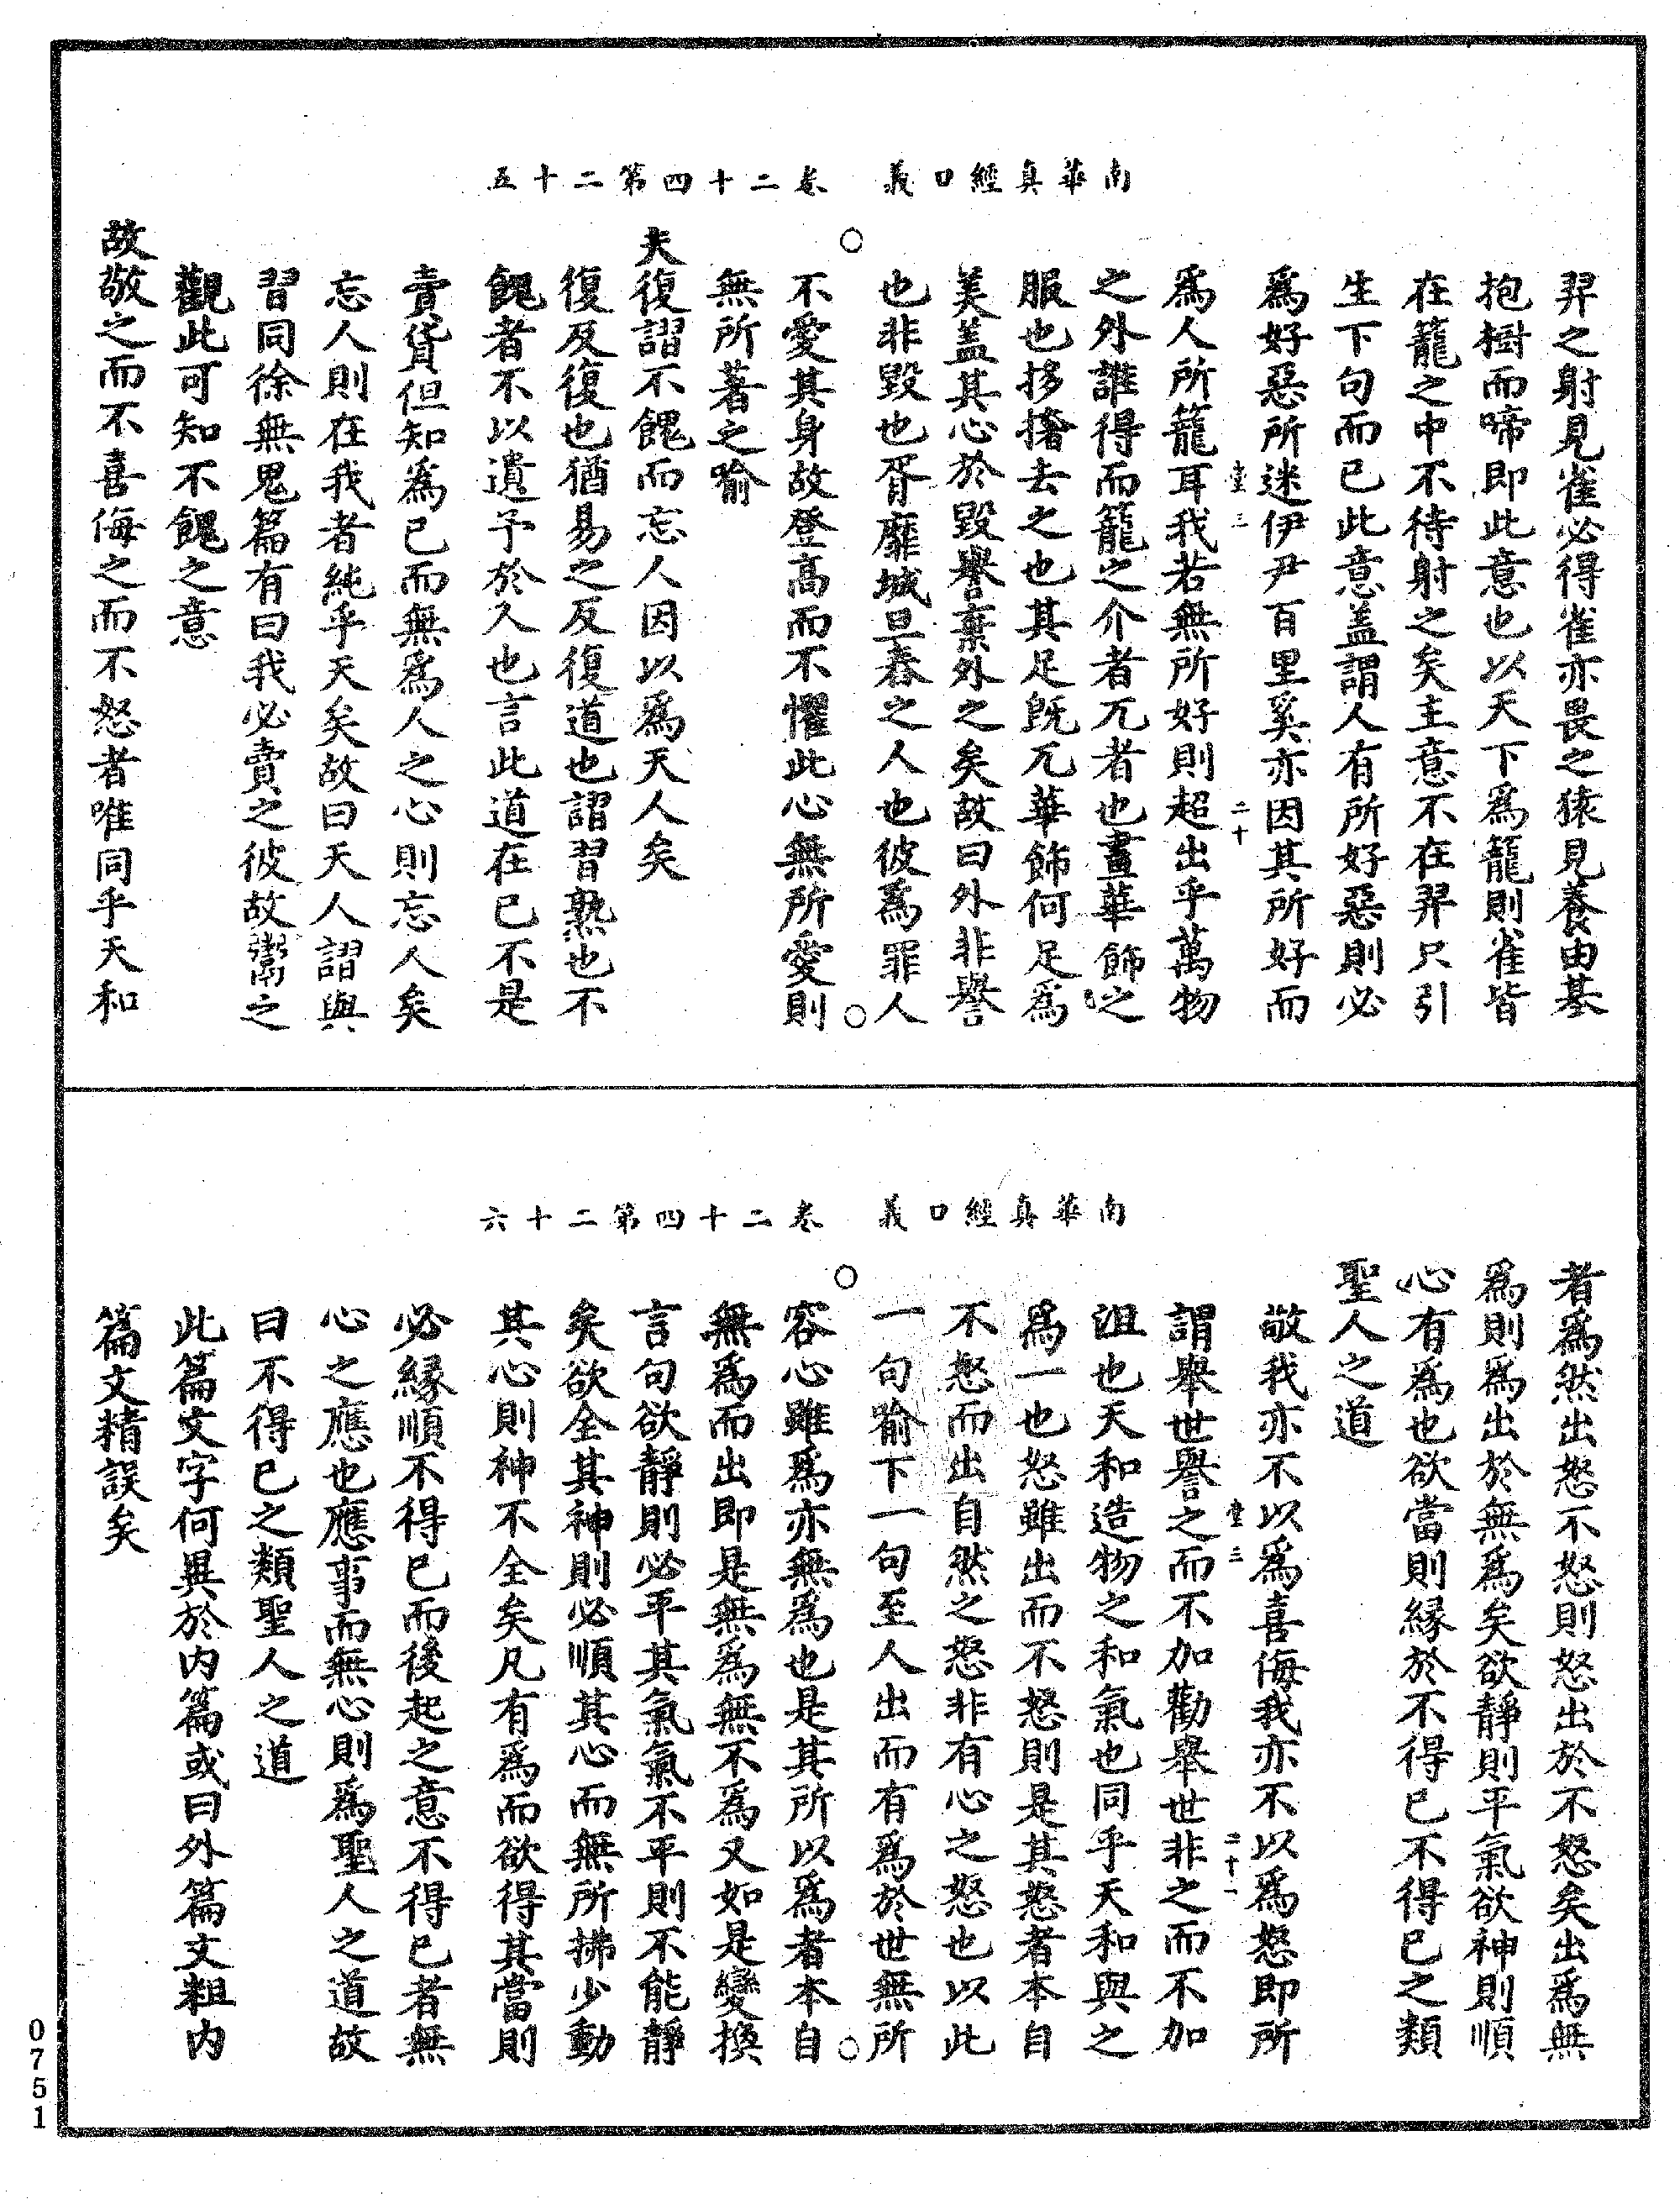 南華真經口義　卷二十四第二十五
羿之射見雀必得雀亦畏之猿見養由基
抱樹而啼即此意也以天下爲籠則雀皆
在籠之中不待射之矣主意不在羿只引
生下句而已此意盖謂人有所好惡則必
爲好惡所迷伊尹百里奚亦因其所好而
堂三　二十
爲人所籠耳我若無所好則超出乎萬物
之外誰得而籠之介者兀者也畫華飾之
服也拸撦去之也其足既兀華飾何足爲
美盖其心於毀譽棄外之矣故曰外非譽
也非毀也胥靡城旦舂之人也彼爲罪人
不愛其身故登高而不懼此心無所愛則
無所著之喻
夫復謵不餽而忘人因以爲天人矣
復反復也猶易之反復道也謵習熟也不
餽者不以遺予於久也言此道在已不是
賣貨但知爲已而無爲人之心則忘人矣
忘人則在我者純乎天矣故曰天人謵與
習同徐無鬼篇有曰我必賣之彼故鬻之
觀此可知不餽之意
故敬之而不喜侮之而不怒者唯同乎天和
南華真經口義　卷二十四第二十六
者爲然出怒不怒則怒出於不怒矣出爲無
爲則爲出於無爲矣欲靜則平氣欲神則順
心有爲也欲當則緣於不得已不得已之類
聖人之道
敬我亦不以爲喜侮我亦不以爲怒即所
堂三　二十一
謂舉世譽之而不加勸舉世非之而不加
沮也天和造物之和氣也同乎天和與之
爲一也怒雖出而不怒則是其怒者本自
不怒而出自然之怒非有心之怒也以此
一句喻下一句至人出而有爲於世無所
容心雖爲亦無爲也是其所以爲者本自
無爲而出即是無爲無不爲又如是變換
言句欲靜則必平其氣氣不平則不能靜
矣欲全其神則必順其心而無所拂少動
其心則神不全矣凡有爲而欲得其當則
必緣順不得已而後起之意不得已者無
心之應也應事而無心則爲聖人之道故
曰不得已之類聖人之道
此篇文字何異於内篇或曰外篇文粗内
篇文精誤矣
0751